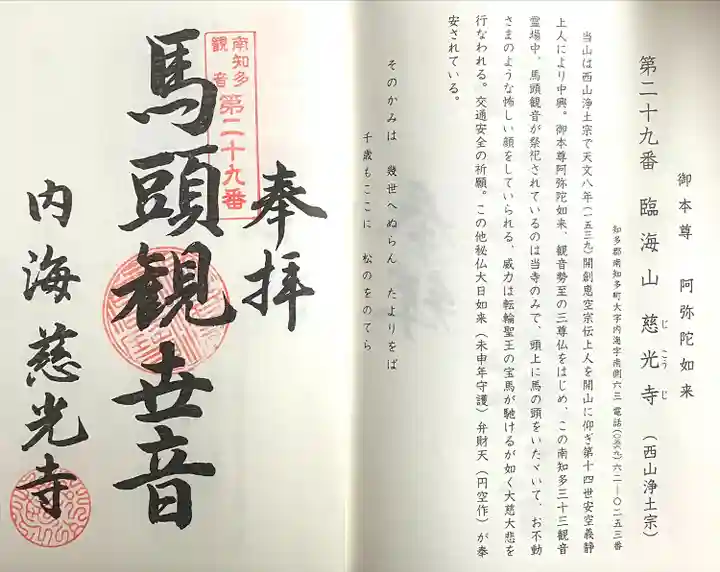 御本尊 阿弥陀如来
第二十九番 臨海山 慈光寺 (西山浄土宗)
じこうじ
知多郡南知多町大字内海字南側六三 電話(〇五六九)六二―〇二五三番
当山は西山浄土宗で天文八年(一五三九)開創恵空宗伝上人を開山に仰ぎ第十四世安空義静
上人により中興。御本尊阿弥陀如来、観音勢至の三尊仏をはじめ、この南知多三十三観音
霊場中、馬頭観音が祭祀されているのは当寺のみで、頭上に馬の頭をいたゞいて、お不動
さまのような怖しい顔をしていられる、威力は転輪聖王の宝馬が馳けるが如く大慈大悲を
行なわれる。交通安全の祈願。この他秘仏大日如来(未申年守護)弁財天(円空作)が奉
安されている。
そのかみは 幾世へぬらん たよりをば
千歳もここに 松のをのてら
奉拝
南知多
観音
第二十九番
馬頭観世音
内海慈光寺